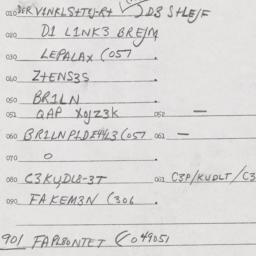 010 DER VINKLS+TUJ-R+ D3 S+LE/F
020 D1 L1NK3 BREJM
030 LEPALAX (057 .
040 Z+ENS3S .
050 BR1LN .
051 QAP XQJZ3K 052 —
060 BR1LNP1DE44L3 (057 061 —
070 0 .
080 C3KUDL8-3T 061 C3P/KUDLT/C3
090 FAKEM3N (306 .
901 FAPL80NTET (049051